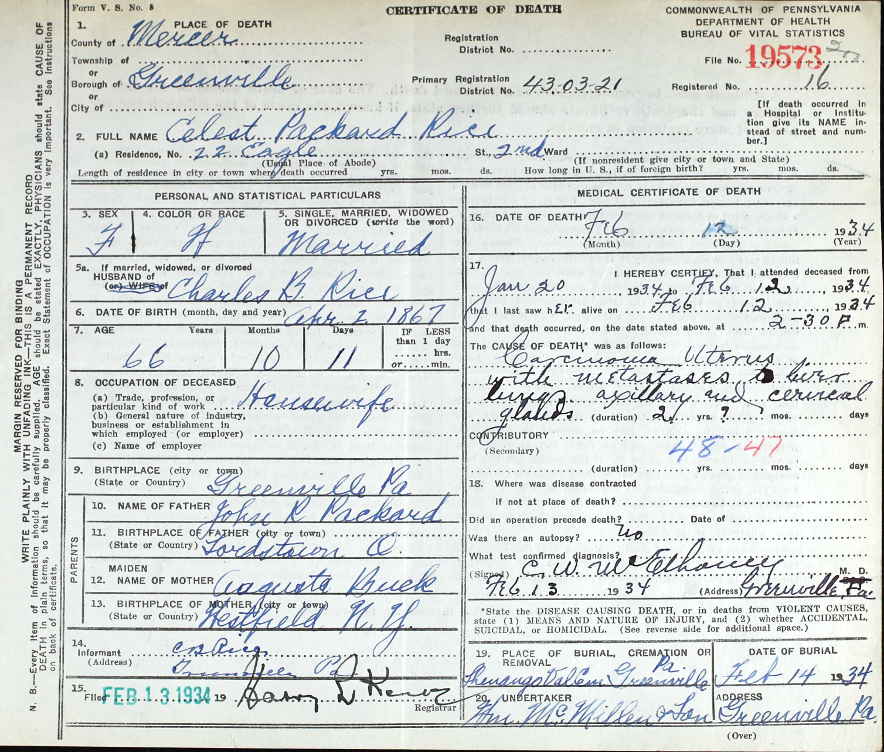 Form V. S. No. 5
CERTIFICATE OF DEATH
COMMONWEALTH OF PENNSYLVANIA
DEPARTMENT OF HEALTH
BUREAU OF VITAL STATISTICS
1. PLACE OF DEATH
County of Mercer
Township of
or
Borough of Greenville
or
City of
Registration
District No.
Primary Registration
District No. 43.03-21
File No. 19573
Registered No. 16
[If death occurred in
a Hospital or Institu-
tion give its NAME in-
stead of street and num-
ber.]
2. FULL NAME Celest Packard Rice
(a) Residence, No. 22 Eagle St., 2nd Ward
(Usual Place of Abode) (If nonresident give city or town and State)
Length of residence in city or town where death occurred yrs. mos. ds. How long in U. S., if of foreign birth? yrs. mos. ds.
PERSONAL AND STATISTICAL PARTICULARS
3. SEX 4. COLOR OR RACE 5. SINGLE, MARRIED, WIDOWED
OR DIVORCED (write the word)
F W Married
5a. If married, widowed, or divorced
HUSBAND of
(or) WIFE of Charles B. Rice
6. DATE OF BIRTH (month, day and year) Apr. 2. 1867
7. AGE Years Months Days IF LESS
than 1 day
hrs.
or min.
66 10 11
8. OCCUPATION OF DECEASED
(a) Trade, profession, or
particular kind of work Housewife
(b) General nature of industry,
business or establishment in
which employed (or employer)
(c) Name of employer
9. BIRTHPLACE (city or town)
(State or Country) Greenville Pa
PARENTS
10. NAME OF FATHER John R Packard
11. BIRTHPLACE OF FATHER (city or town)
(State or Country) Lordstown O.
MAIDEN
12. NAME OF MOTHER Augusta Buck
13. BIRTHPLACE OF MOTHER (city or town)
(State or Country) Westfield N. Y.
14.
Informant C B Rice
(Address) Greenville Pa
15.
Filed FEB 13 1934 19 Harry
Registrar
MEDICAL CERTIFICATE OF DEATH
16. DATE OF DEATH Feb 12 1934
(Month) (Day) (Year)
17.
I HEREBY CERTIFY, That I attended deceased from
Jan 20 1934 to Feb 12 1934
that I last saw her alive on Feb 12 1934
and that death occurred, on the date stated above, at 2-30 P m.
The CAUSE OF DEATH* was as follows:
Carcinoma Uterus
with metastases to liver
lung axillary and cervical
glands (duration) 2 yrs. ? mos. days
CONTRIBUTORY
(Secondary) 48-47
(duration) yrs. mos. days
18. Where was disease contracted
if not at place of death?
Did an operation precede death? Date of
Was there an autopsy? no
What test confirmed diagnosis?
(Signed) C. W. McElhaney M. D.
Feb 13 1934 (Address) Greenville Pa.
*State the DISEASE CAUSING DEATH, or in deaths from VIOLENT CAUSES,
state (1) MEANS AND NATURE OF INJURY, and (2) whether ACCIDENTAL,
SUICIDAL, or HOMICIDAL. (See reverse side for additional space.)
19. PLACE OF BURIAL, CREMATION OR
REMOVAL
Shenango Val Cem Greenville Pa
DATE OF BURIAL
Feb 14 1934
20. UNDERTAKER
Wm. McMillen & Son
ADDRESS
Greenville Pa.
(Over)
MARGIN RESERVED FOR BINDING
WRITE PLAINLY WITH UNFADING INK—THIS IS A PERMANENT RECORD
N. B.—Every item of information should be carefully supplied. AGE should be stated EXACTLY, PHYSICIANS should state CAUSE OF
DEATH in plain terms, so that it may be properly classified. Exact Statement of OCCUPATION is very important. See instructions
on back of certificate.